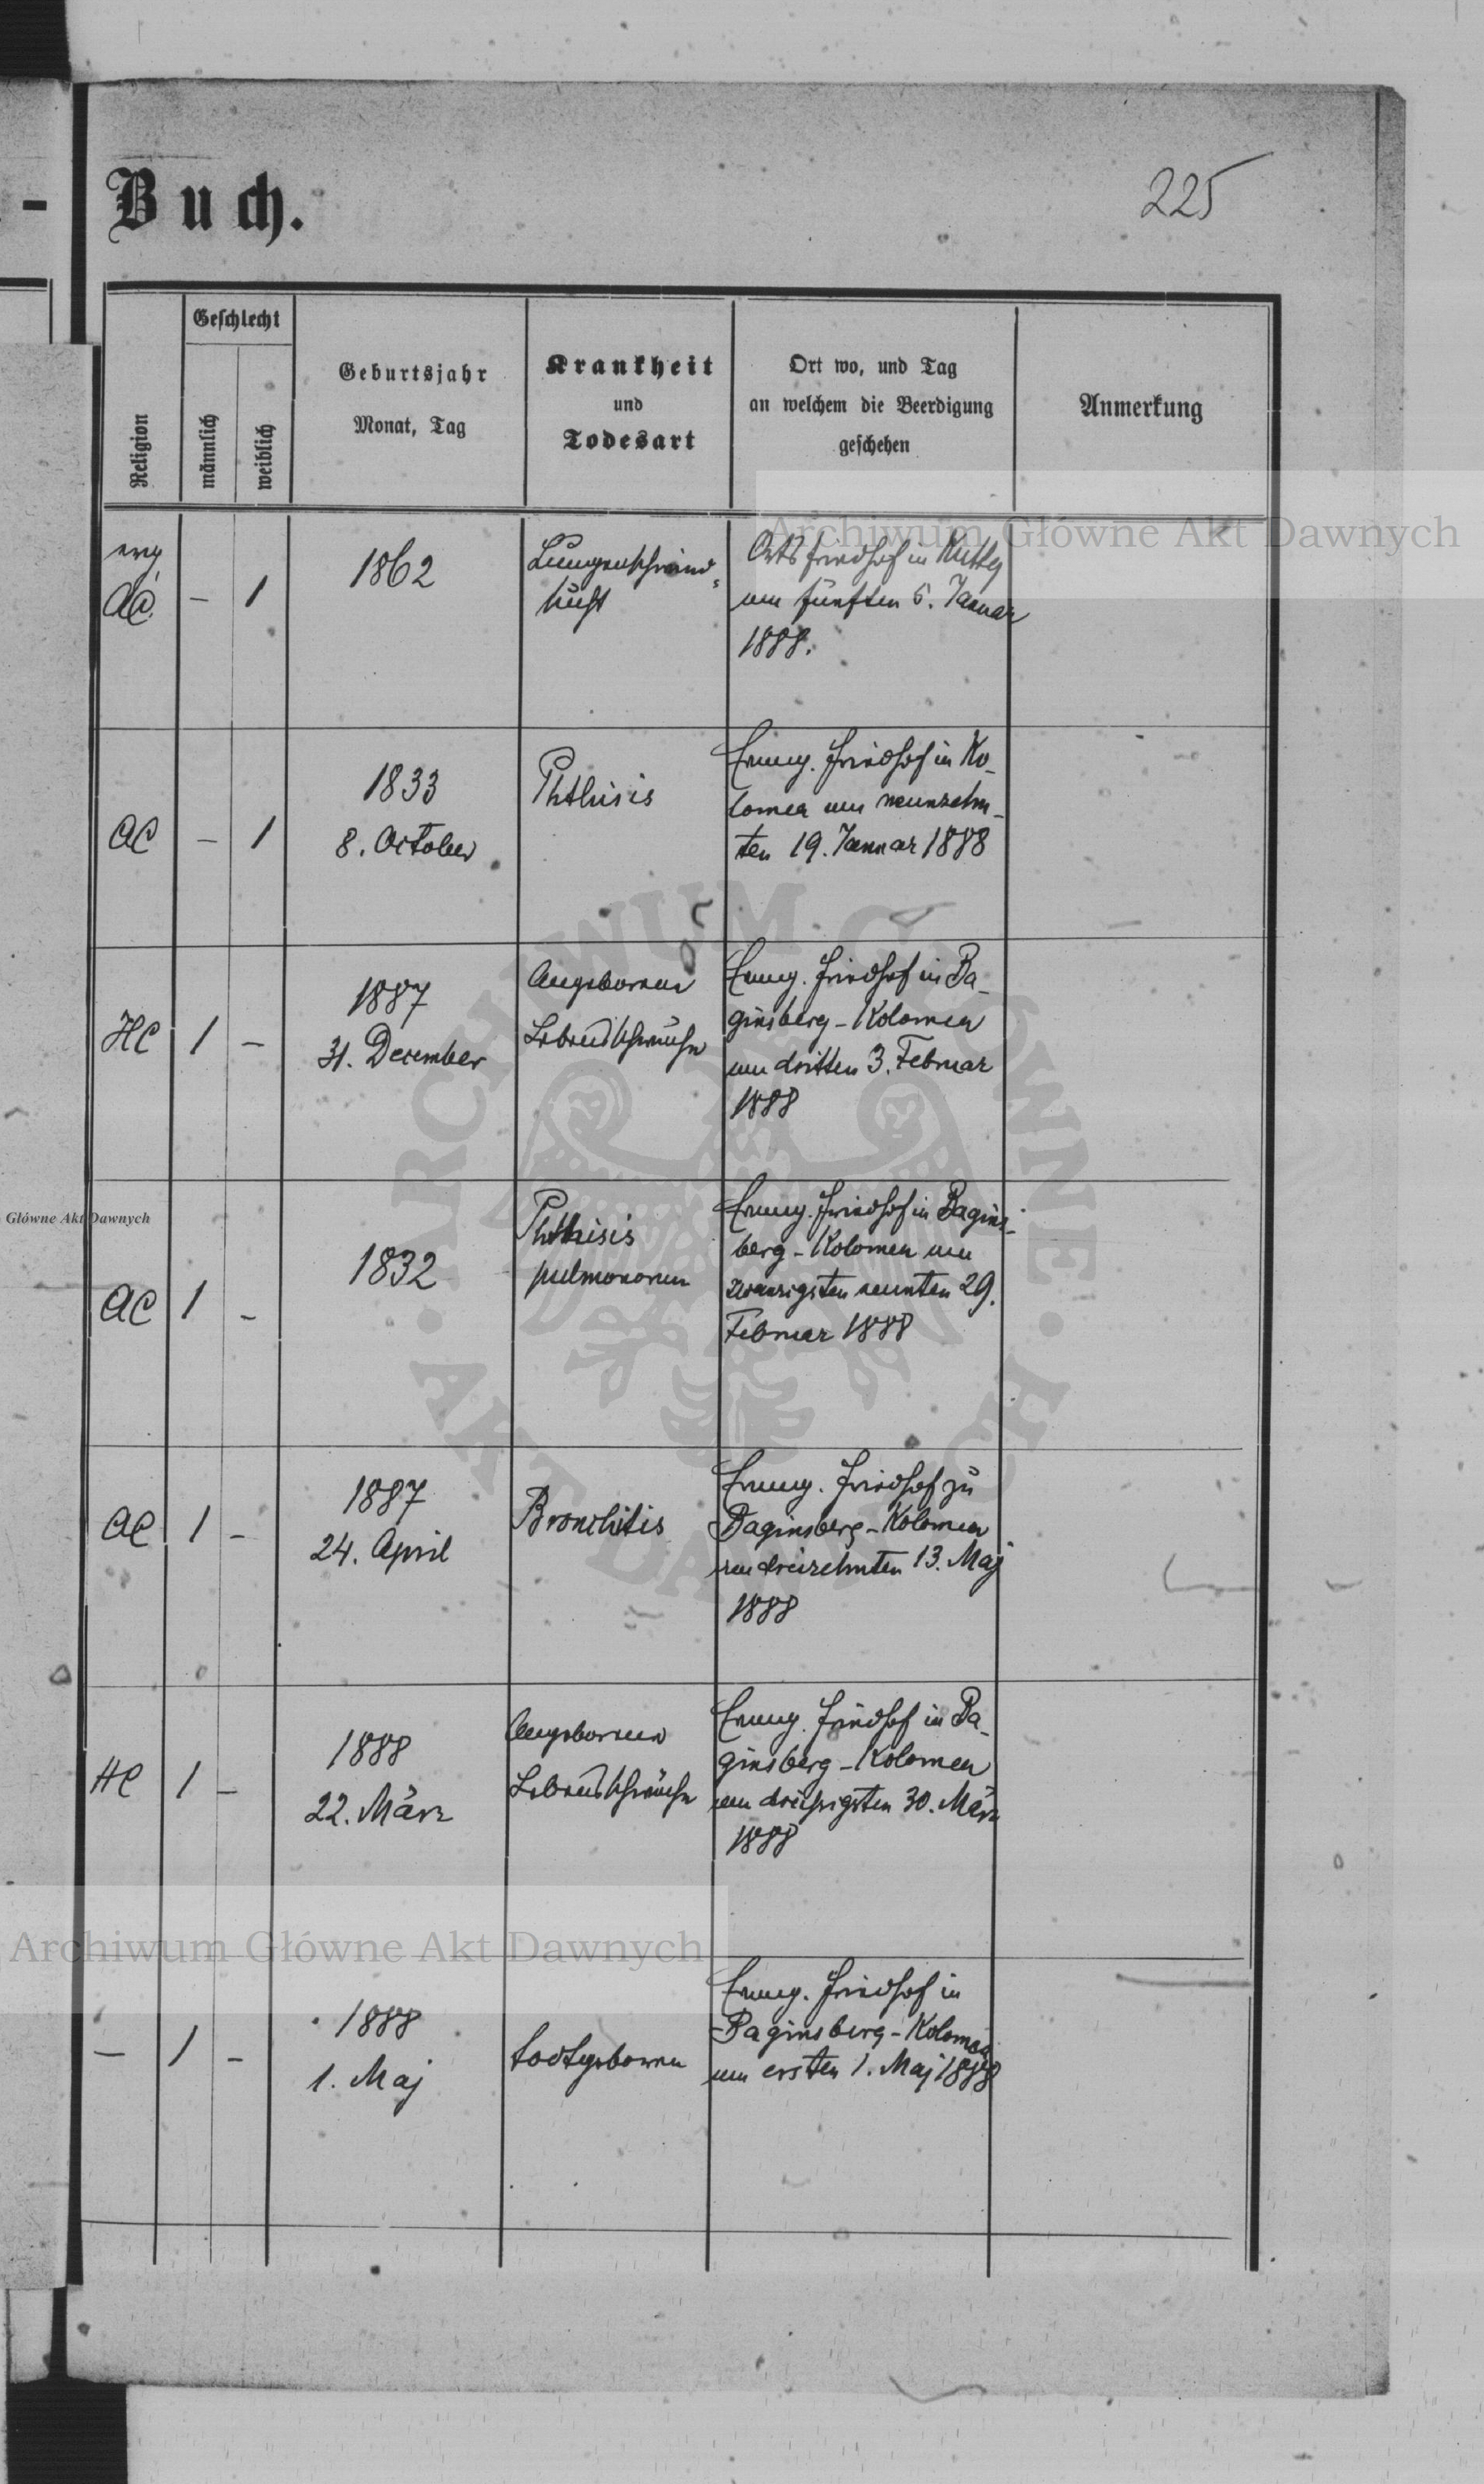 Buch.
225
Religion
Geschlecht
männlich
weiblich
Geburtsjahr
Monat, Tag
Krankheit
und
Todesart
Ort wo, und Tag
an welchem die Beerdigung
geschehen
Anmerkung
evg
AC
–
1
1862
Lungenschwind-
sucht
Ortsfriedhof in Kutty
am fünften 5. Januar
1888.
AC
–
1
1833
8. October
Phthisis
Evang. Friedhof in Ko-
lomea am neunzehn-
ten 19. Januar 1888
HC
1
–
1887
31. December
Angeborene
Lebensschwäche
Evang. Friedhof in Ba-
ginsberg-Kolomea
am dritten 3. Februar
1888
AC
1
–
1832
Phthisis
pulmonorum
Evang. Friedhof in Bagins-
berg-Kolomea am
zwanzigsten neunten 29.
Februar 1888
AC
1
–
1887
24. April
Bronchitis
Evang. Friedhof zu
Baginsberg-Kolomea
am dreizehnten 13. Maj
1888
HC
1
–
1888
22. März
Angeborene
Lebensschwäche
Evang. Friedhof in Ba-
ginsberg-Kolomea
am dreißigsten 30. März
1888
–
1
–
1888
1. Maj
todtgeboren
Evang. Friedhof in
Baginsberg-Kolomea
am ersten 1. Maj 1888
Archiwum Główne Akt Dawnych
Główne Akt Dawnych
Archiwum Główne Akt Dawnych
ARCHIWUM GŁÓWNE AKT DAWNYCH